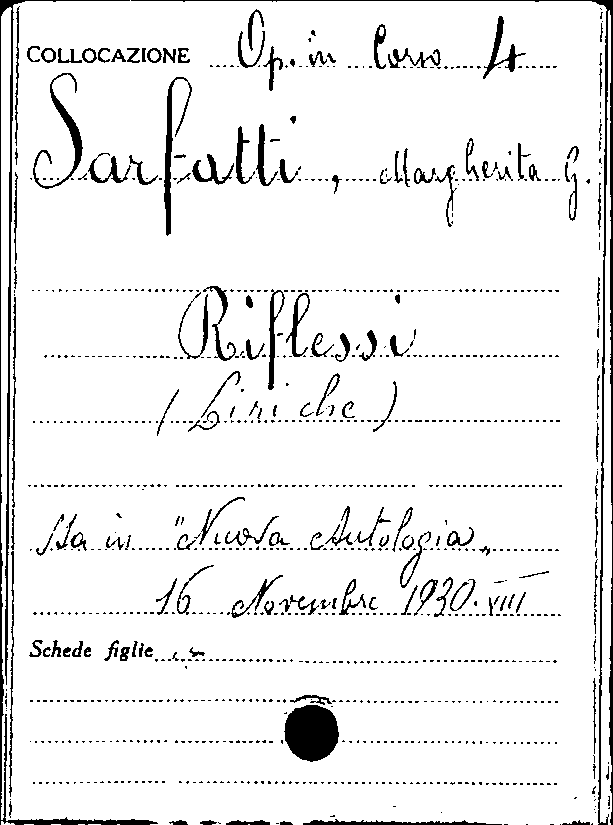 COLLOCAZIONE Op. in Corso 4
Sarfatti, Margherita G.
Riflessi
(Liriche)
Sta in "Nuova Antologia„
16 Novembre 1930. VIII
Schede figlie